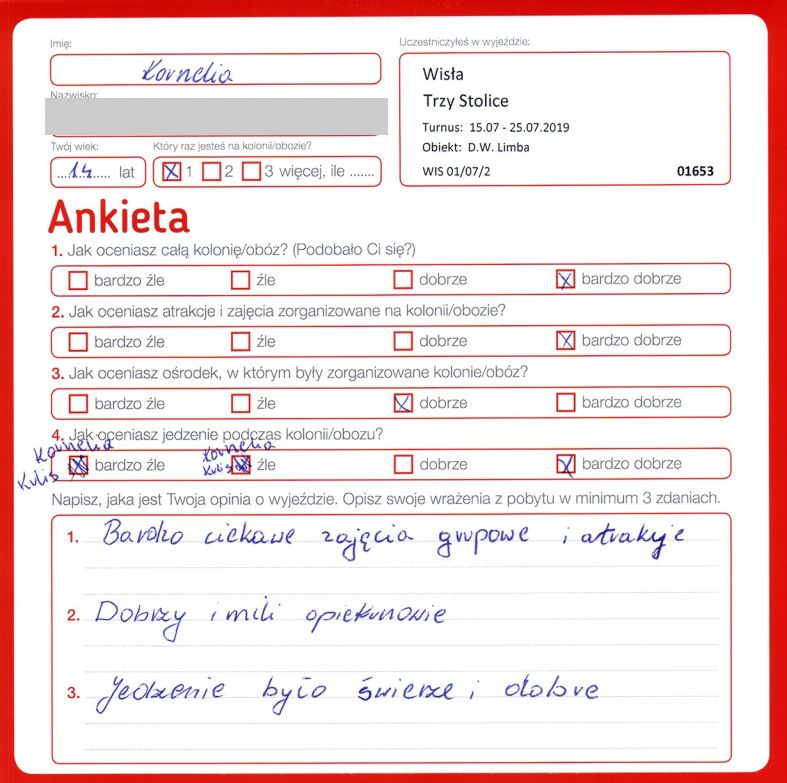 Imię:
Kornelia
Nazwisko:
Twój wiek:
14 lat
Który raz jesteś na kolonii/obozie?
1 2 3 więcej, ile .......
Uczestniczyłeś w wyjeździe:
Wisła
Trzy Stolice
Turnus: 15.07 - 25.07.2019
Obiekt: D.W. Limba
WIS 01/07/2 01653
Ankieta
1. Jak oceniasz całą kolonię/obóz? (Podobało Ci się?)
bardzo źle źle dobrze bardzo dobrze
2. Jak oceniasz atrakcje i zajęcia zorganizowane na kolonii/obozie?
bardzo źle źle dobrze bardzo dobrze
3. Jak oceniasz ośrodek, w którym były zorganizowane kolonie/obóz?
bardzo źle źle dobrze bardzo dobrze
4. Jak oceniasz jedzenie podczas kolonii/obozu?
Kornelia Kornelia
Kulis Kulis
bardzo źle źle dobrze bardzo dobrze
Napisz, jaka jest Twoja opinia o wyjeździe. Opisz swoje wrażenia z pobytu w minimum 3 zdaniach.
1. Bardzo ciekawe zajęcia grupowe i atrakcje
2. Dobrzy i mili opiekunowie
3. Jedzenie było świerze i dobre